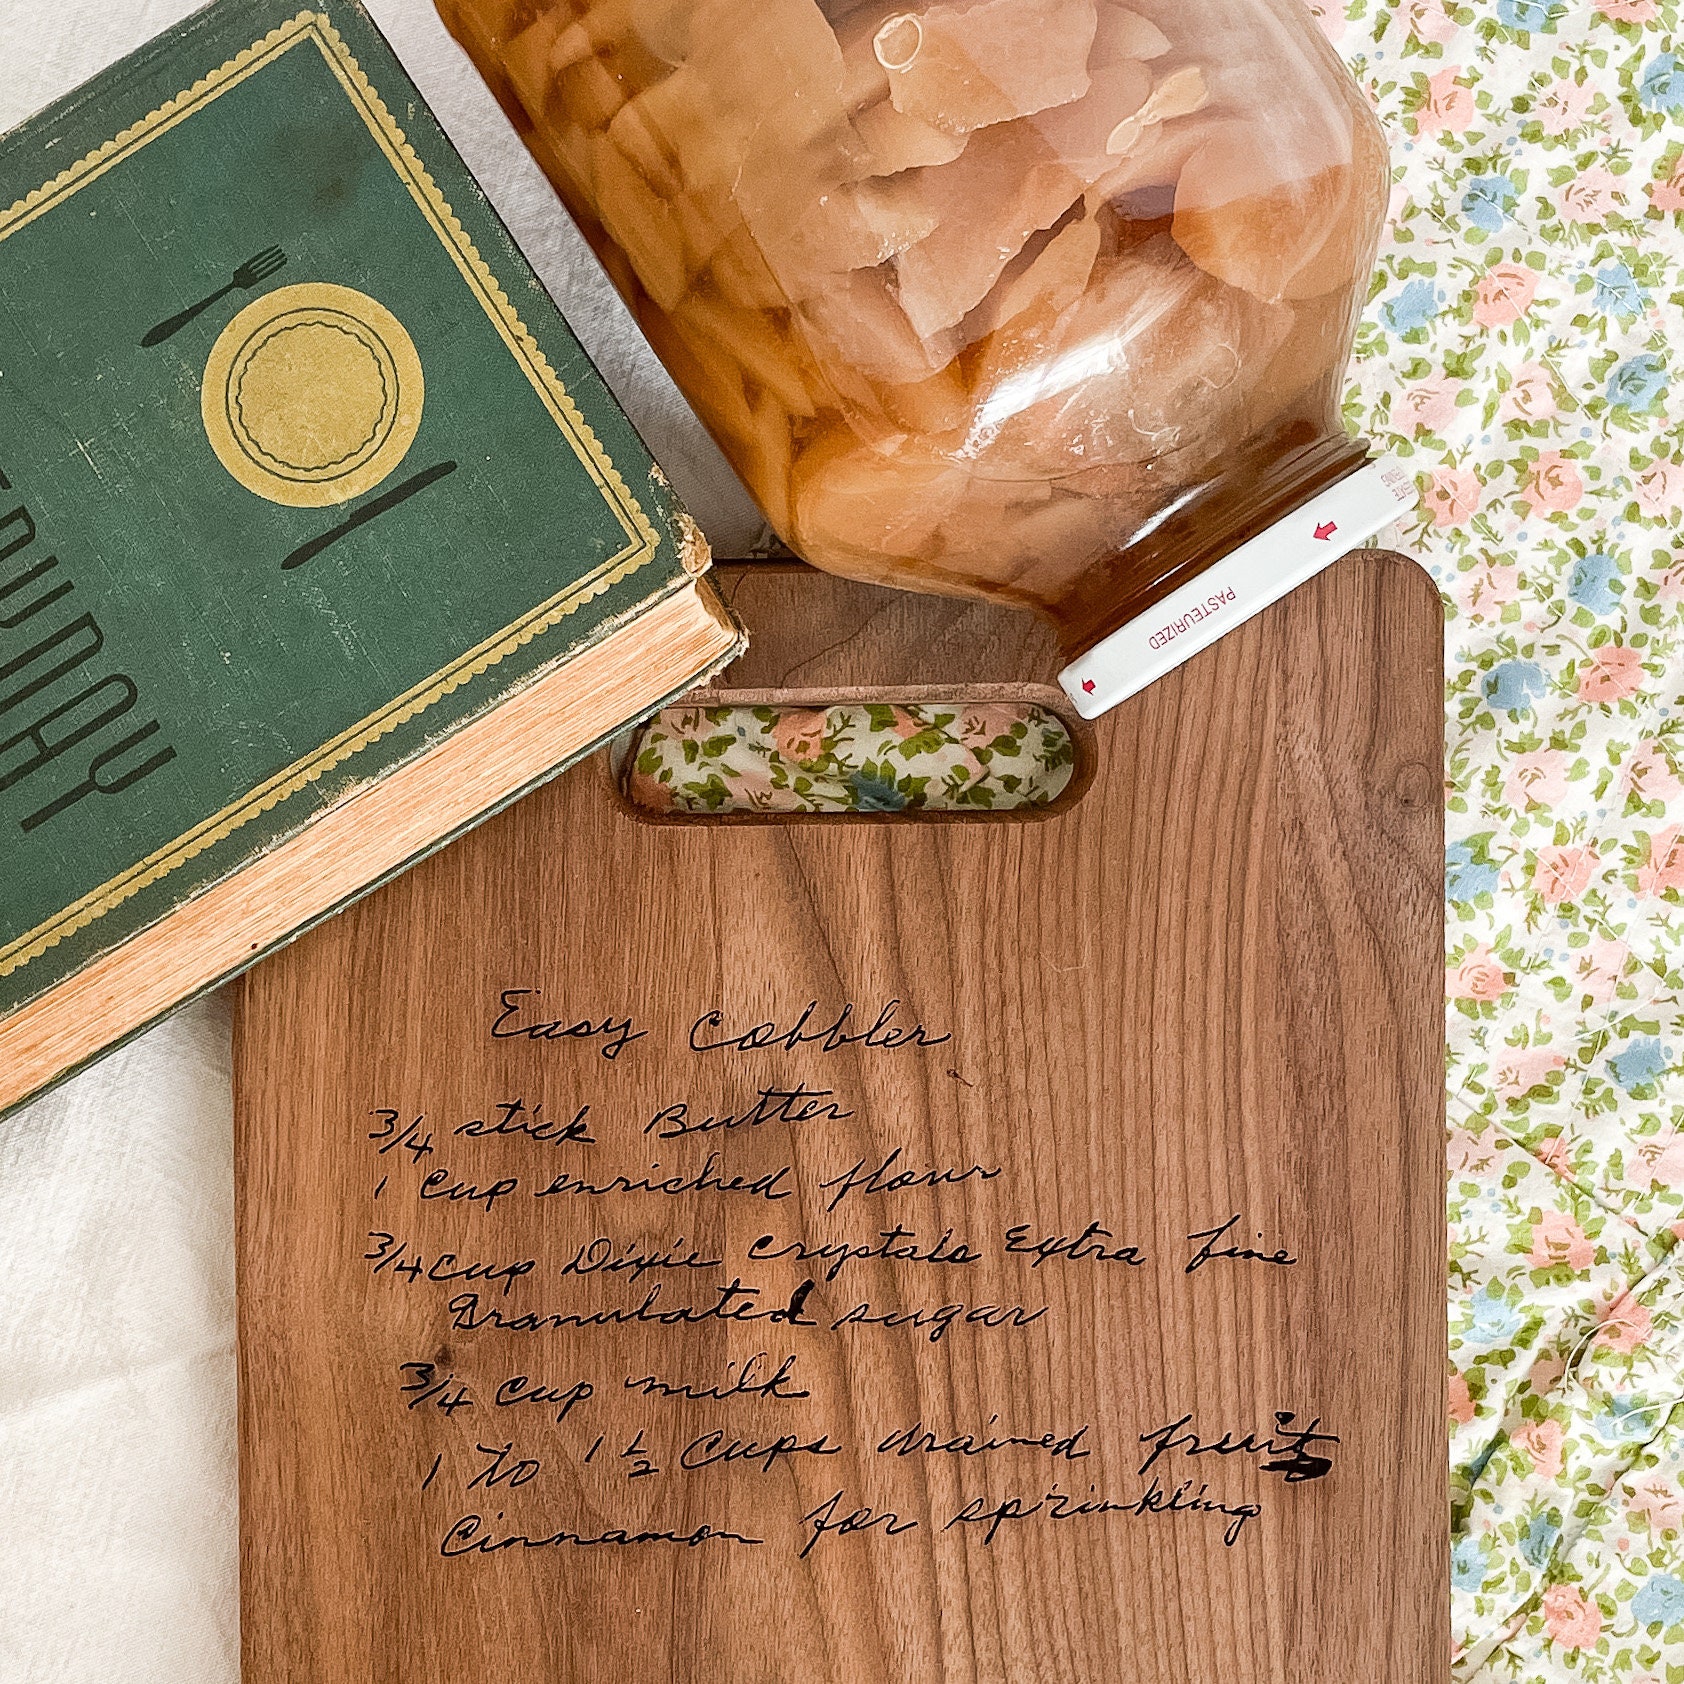 PASTEURIZED
Easy Cobbler
3/4 stick Butter
1 Cup enriched flour
3/4 cup Dixie Crystals Extra fine
Granulated sugar
3/4 cup milk
1 to 1 1/2 Cups drained fruit
Cinnamon for sprinkling